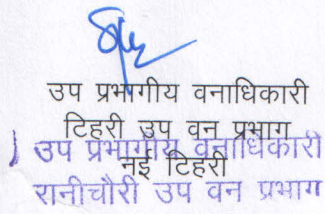 उप प्रभागीय वनाधिकारी
टिहरी उप वन प्रभाग
उप प्रभागीय वनाधिकारी
नई टिहरी
रानीचौरी उप वन प्रभाग